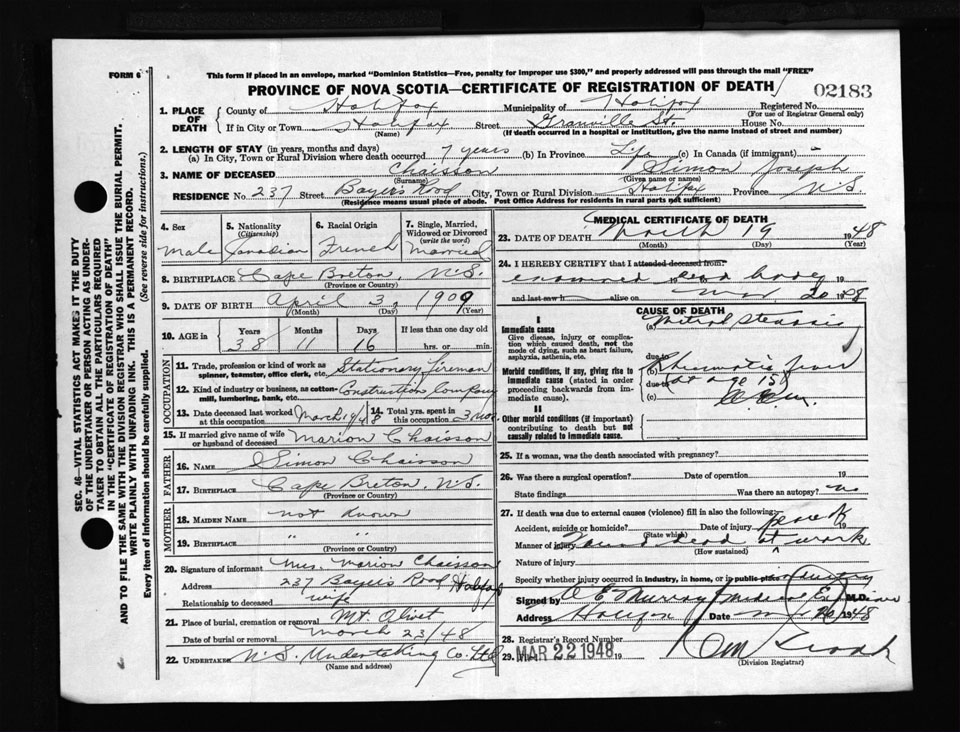 FORM 6
This form if placed in an envelope, marked "Dominion Statistics—Free, penalty for improper use $300," and properly addressed will pass through the mail "FREE"
PROVINCE OF NOVA SCOTIA—CERTIFICATE OF REGISTRATION OF DEATH
02183
1. PLACE OF DEATH County of Halifax Municipality of Halifax Registered No.
(For use of Registrar General only)
If in City or Town Halifax Street Granville St. House No.
(Name) (If death occurred in a hospital or institution, give the name instead of street and number)
2. LENGTH OF STAY (in years, months and days)
(a) In City, Town or Rural Division where death occurred 7 years (b) In Province Life (c) In Canada (if immigrant)
3. NAME OF DECEASED Chaisson Simon Joseph
(Surname) (Given name or names)
RESIDENCE No. 237 Street Bayers Road City, Town or Rural Division Halifax Province N.S.
(Residence means usual place of abode. Post Office Address for residents in rural parts not sufficient)
4. Sex
Male
5. Nationality (Citizenship)
Canadian
6. Racial Origin
French
7. Single, Married, Widowed or Divorced (write the word)
Married
8. BIRTHPLACE Cape Breton, N.S.
(Province or Country)
9. DATE OF BIRTH April 3, 1909
(Month) (Day) (Year)
10. AGE in Years Months Days If less than one day old
38 11 16 hrs. or min.
OCCUPATION
11. Trade, profession or kind of work as spinner, teamster, office clerk, etc. Stationary Fireman
12. Kind of industry or business, as cotton-mill, lumbering, bank, etc. Construction Company
13. Date deceased last worked at this occupation March 19/48 14. Total yrs. spent in this occupation 3 mos.
15. If married give name of wife or husband of deceased Marion Chaisson
FATHER
16. NAME Simon Chaisson
17. BIRTHPLACE Cape Breton, N.S.
(Province or Country)
MOTHER
18. MAIDEN NAME not known
19. BIRTHPLACE " "
(Province or Country)
20. Signature of informant Mrs. Marion Chaisson
Address 237 Bayers Road Halifax
Relationship to deceased wife
21. Place of burial, cremation or removal Mt. Olivet
Date of burial or removal March 23/48
22. UNDERTAKER N.S. Undertaking Co. Ltd
(Name and address)
MEDICAL CERTIFICATE OF DEATH
23. DATE OF DEATH March 19 1948
(Month) (Day) (Year)
24. I HEREBY CERTIFY that I attended deceased from:
examined dead body 19
and last saw h alive on Mar 20 1948
CAUSE OF DEATH
I
Immediate cause
Give disease, injury or complication which caused death, not the mode of dying, such as heart failure, asphyxia, asthenia, etc.
(a) Mitral Stenosis
due to
Morbid conditions, if any, giving rise to immediate cause (stated in order proceeding backwards from immediate cause).
(b) Rheumatic fever
due to at age 15
(c)
II
Other morbid conditions (if important) contributing to death but not causally related to immediate cause.
25. If a woman, was the death associated with pregnancy?
26. Was there a surgical operation? Date of operation 19
State findings Was there an autopsy? no
27. If death was due to external causes (violence) fill in also the following:
Accident, suicide or homicide? Date of injury 19
(State which)
Manner of injury Found dead at work
(How sustained)
Nature of injury
Specify whether injury occurred in industry, in home, or in public place Industry
Signed by A E Murray Medical Examiner M.D.
Address Halifax Date Mar 20 1948
28. Registrar's Record Number
29. MAR 22 1948 19
(Division Registrar)
SEC. 46—VITAL STATISTICS ACT MAKES IT THE DUTY OF THE UNDERTAKER OR PERSON ACTING AS UNDERTAKER TO OBTAIN ALL THE PARTICULARS REQUIRED IN THE "CERTIFICATE OF REGISTRATION OF DEATH" AND TO FILE THE SAME WITH THE DIVISION REGISTRAR WHO SHALL ISSUE THE BURIAL PERMIT.
WRITE PLAINLY WITH UNFADING INK. THIS IS A PERMANENT RECORD.
Every item of information should be carefully supplied. (See reverse side for instructions.)